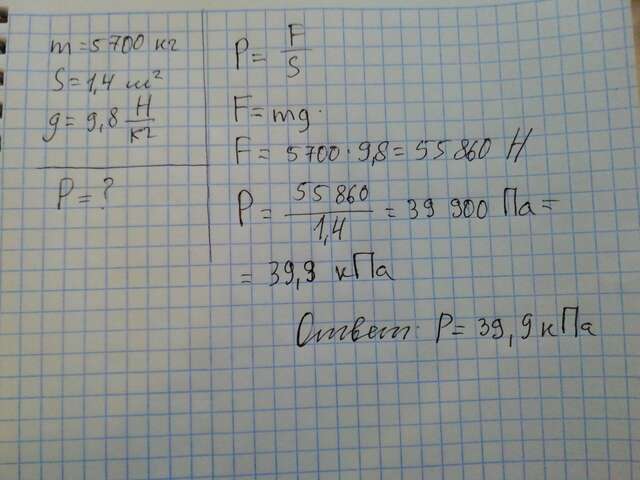 m = 5700 кг
S = 1,4 м²
g = 9,8 Н/кг
P = ?
P = F/S
F = mg.
F = 5700 · 9,8 = 55 860 Н
P = 55 860/1,4 = 39 900 Па =
= 39,9 кПа
Ответ: P = 39,9 кПа